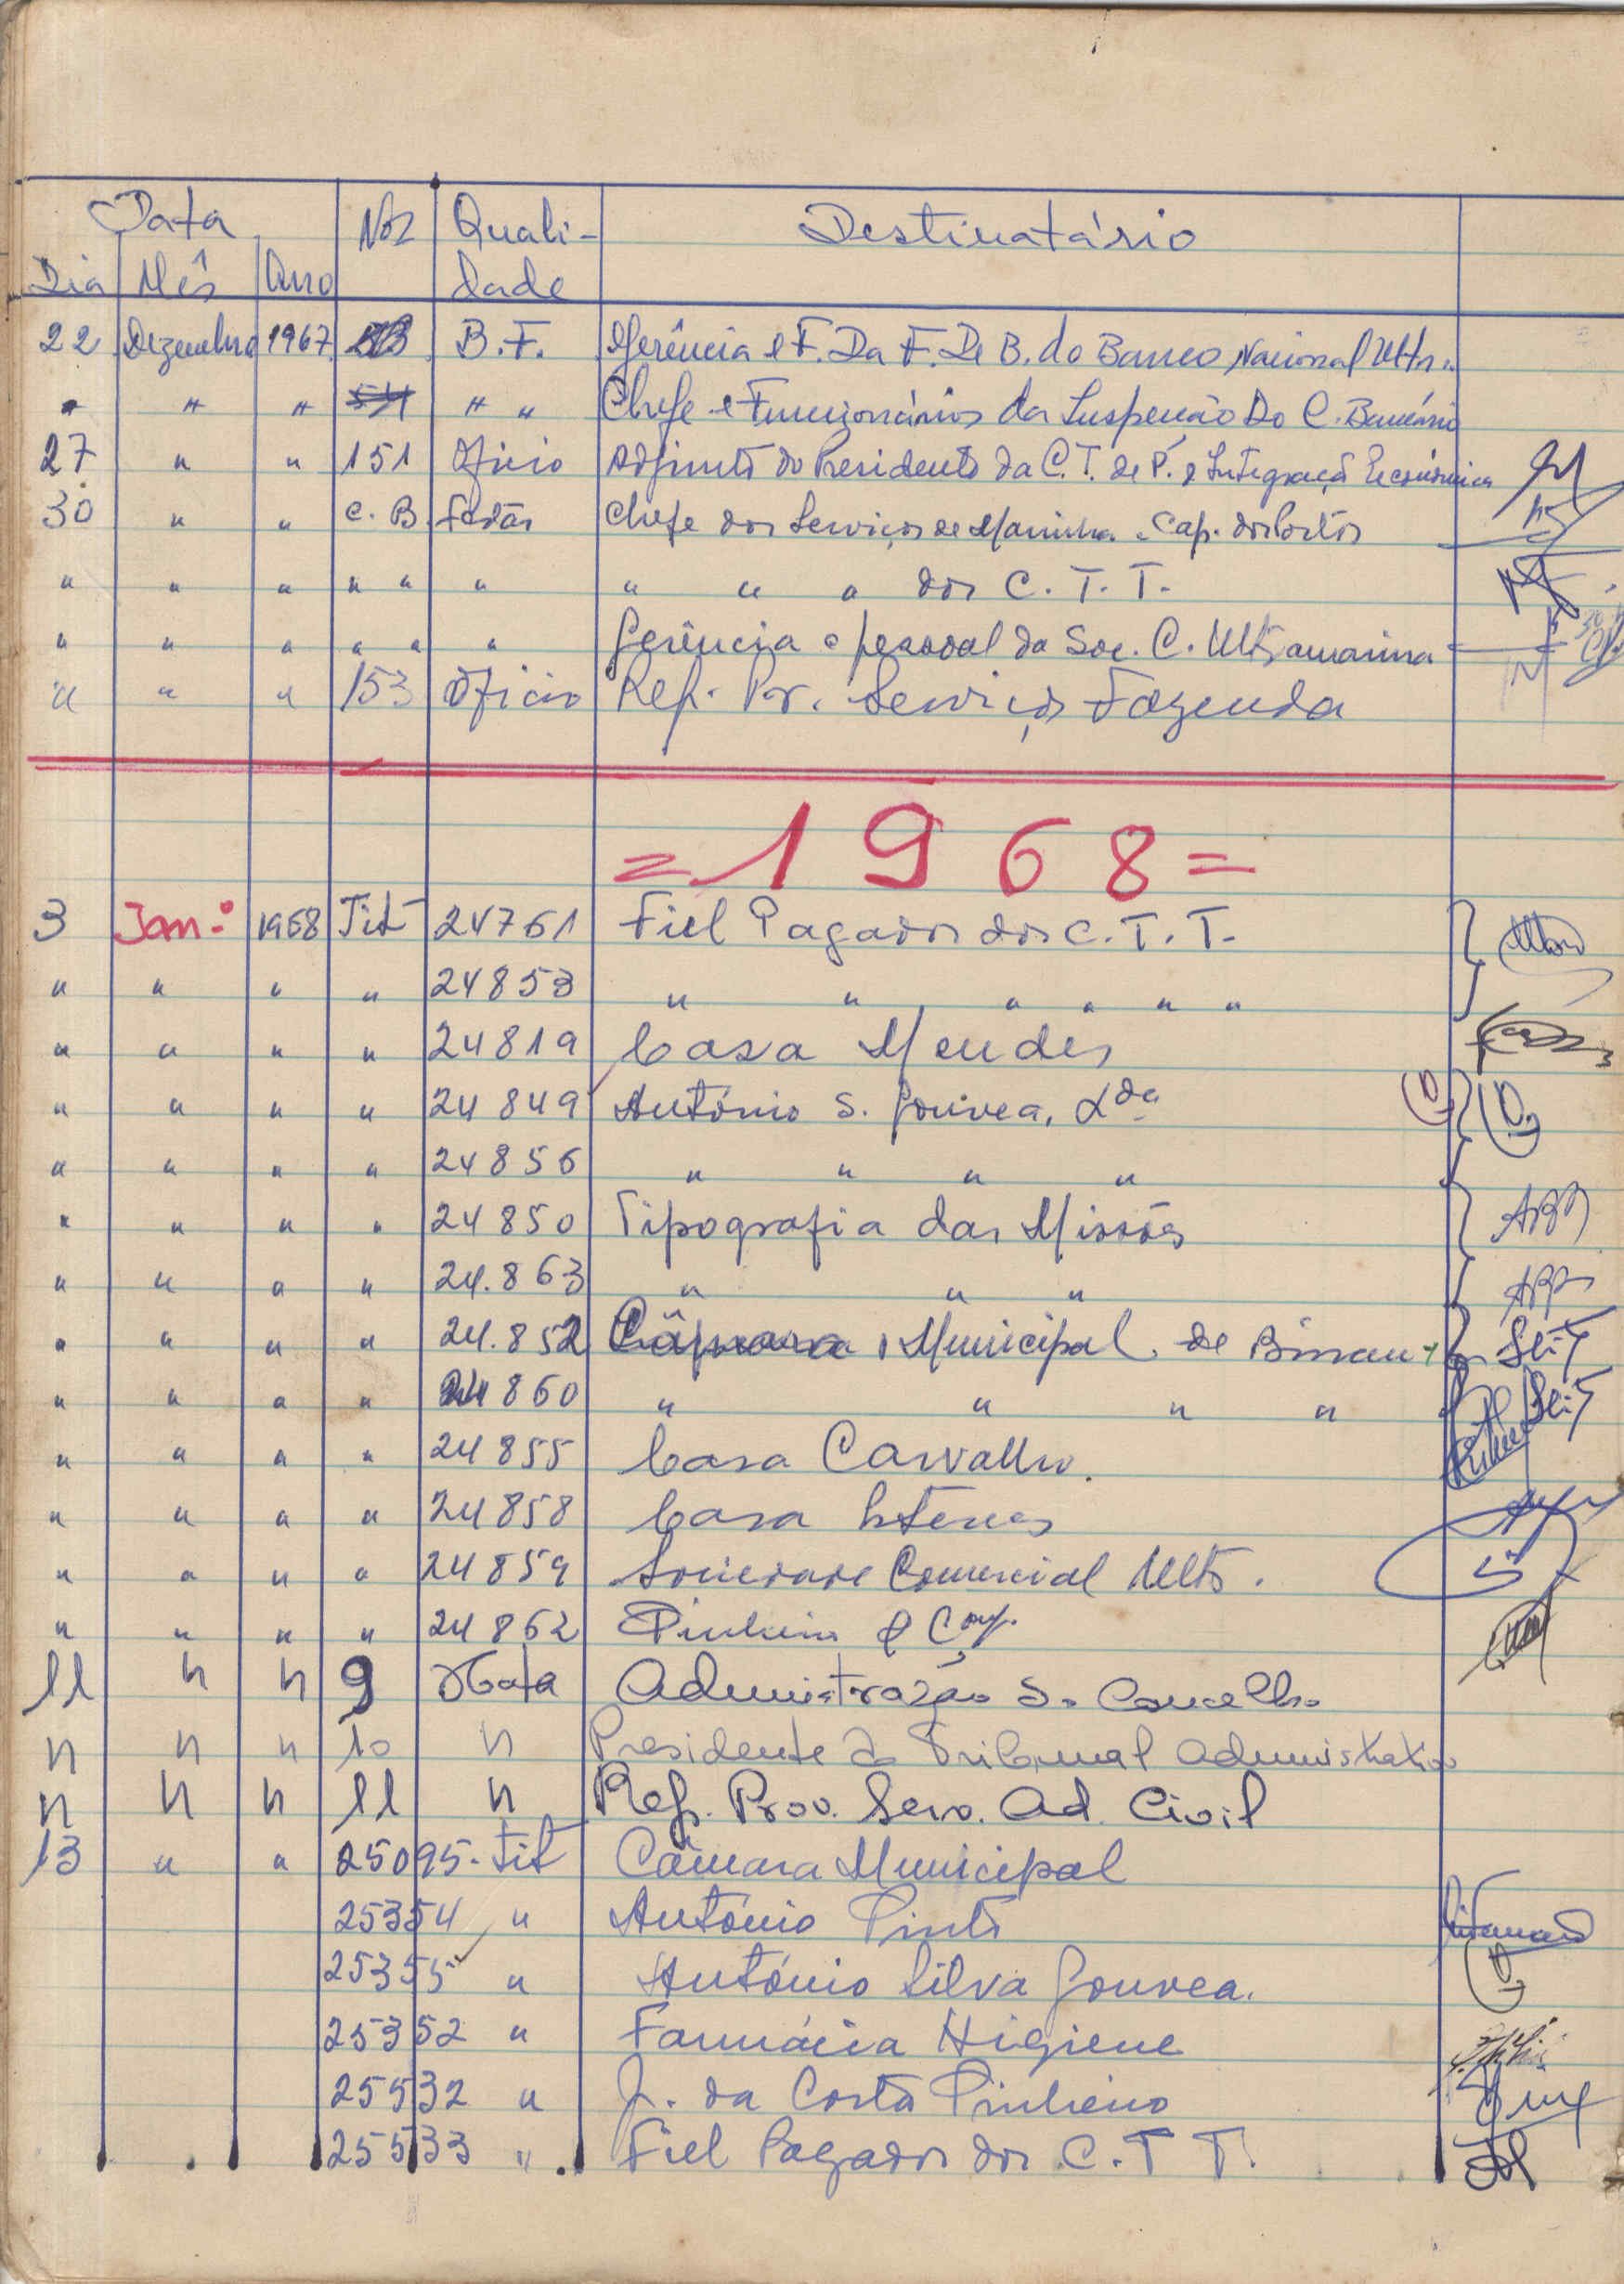 Data Nos Quali- Destinatário
Dia Mês Ano dade
22 Dezembro 1967 B.F. Gerência e F. Da F. De B. do Banco Nacional Ultr.
" " " " " Chefe e Funcionários da Suspensão Do C. Bancário
27 " " 151 Ofício Adjunto do Presidente da C.T. de P. e Integração Económica
30 " " C. B. festas Chefe dos Serviços de Marinha e Cap. dos Portos
" " " " " " " " " dos C. T. T.
" " " " " " Gerência e pessoal da Soc. C. Ultramarina
" " " 153 Ofício Rep. Pr. Serviços Fazenda
= 1968 =
3 Jan.º 1968 Tit 24761 Fiel Pagador dos C. T. T.
" " " " 24853 " " " " "
" " " " 24819 Casa Mendes
" " " " 24849 António S. Gouvea, Lda
" " " " 24856 " " " "
" " " " 24850 Tipografia das Missões
" " " " 24.863 " " "
" " " " 24.852 Câmara Municipal de Bissau
" " " " 24860 " " " "
" " " " 24855 Casa Carvalho.
" " " " 24858 Casa Esteves
" " " " 24859 Sociedade Comercial Ultr.
" " " " 24862 Pinheiro & Comp.
11 " " 9 Nota Administração do Concelho
" " " 10 " Presidente do Tribunal Administrativo
" " " 11 " Rep. Prov. Serv. Ad. Civil
13 " " 25095 - Tit Câmara Municipal
25354 " António Pinto
25355 " António Silva Gouvea.
25352 " Farmácia Higiene
25532 " J. da Costa Pinheiro
25533 " Fiel Pagador dos C. T T.